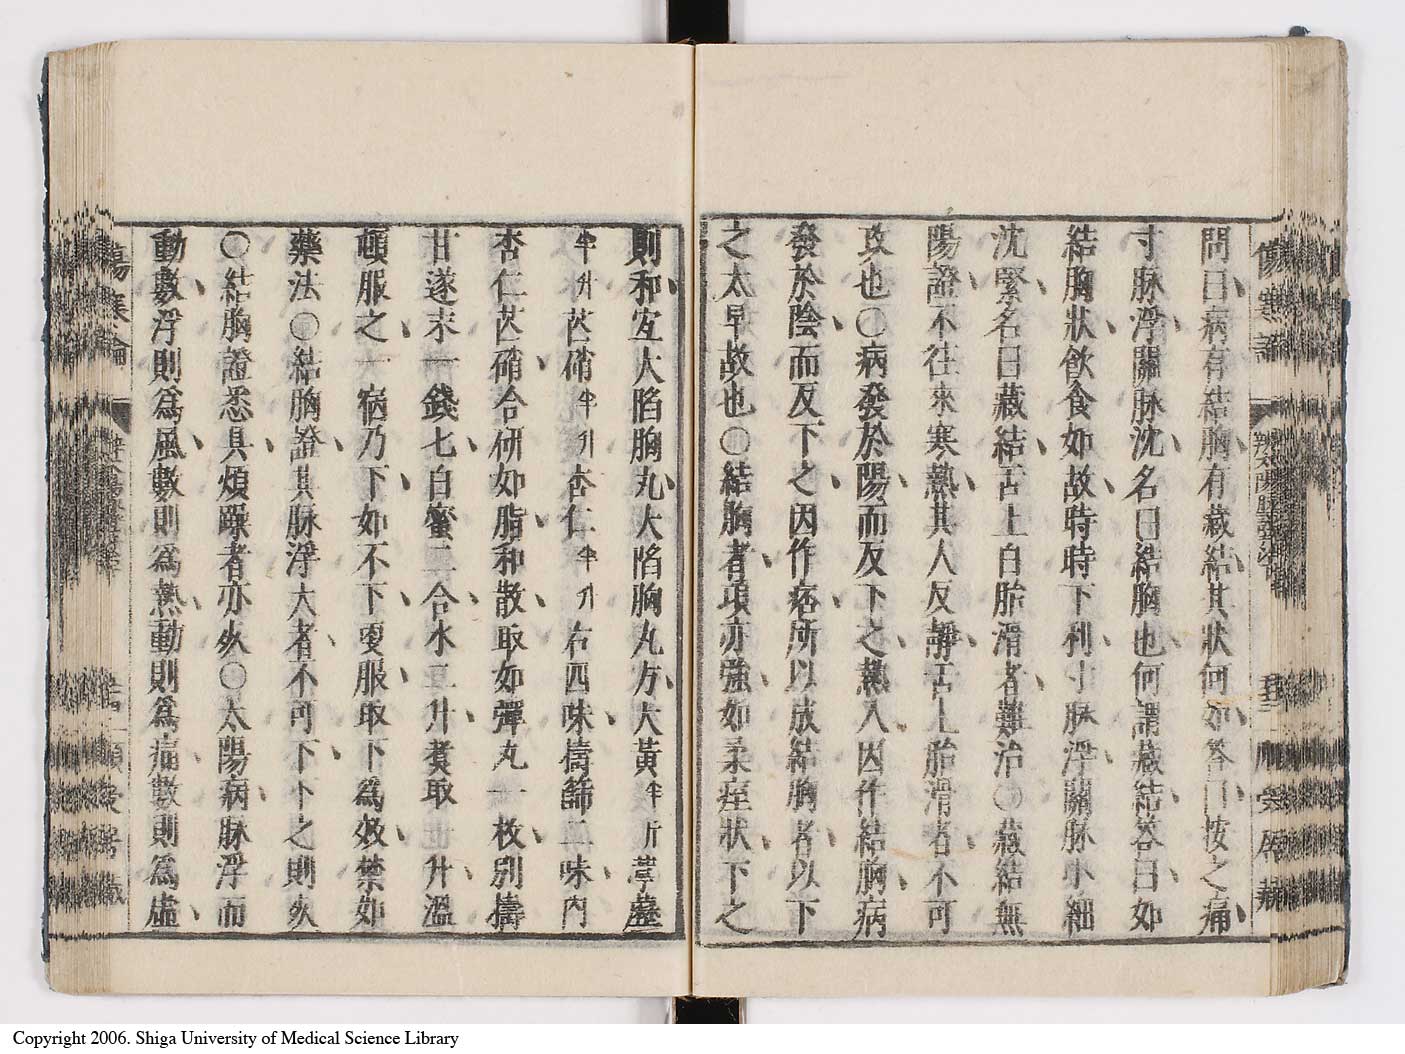 問曰病有結胸有藏結其狀何如答曰按之痛
寸脉浮關脉沈名曰結胸也何謂藏結荅曰如
結胸狀飮食如故時時下利寸脉浮關脉小細
沈緊名曰藏結舌上白胎滑者難治〇藏結無
陽證不往來寒熱其人反靜舌上胎滑者不可
攻也〇病發於陽而反下之熱入因作結胸病
發於陰而反下之因作痞所以成結胸者以下
之太早故也〇結胸者項亦強如柔痓狀下之
則和宜大陷胸丸大陷胸丸方大黃半斤葶藶
半升芒硝半升杏仁半升右四味擣篩二味內
杏仁芒硝合研如脂和散取如彈丸一枚別擣
甘遂末一錢七白蜜二合水二升煑取一升溫
頓服之一宿乃下如不下更服取下爲效禁如
藥法〇結胸證其脉浮大者不可下下之則死
〇結胸證悉具煩躁者亦死〇太陽病脉浮而
動數浮則爲風數則爲熱動則爲痛數則爲虛
傷寒論
Copyright 2006. Shiga University of Medical Science Library